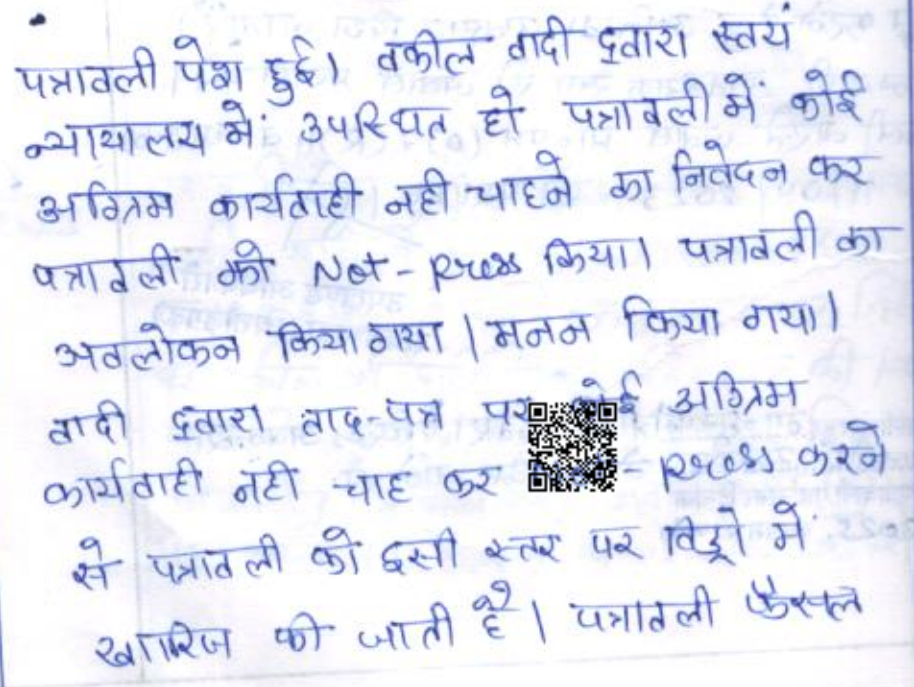 पत्रावली पेश हुई। वकील वादी द्वारा स्वयं
न्यायालय में उपस्थित हो पत्रावली में कोई
अग्रिम कार्यवाही नहीं चाहने का निवेदन कर
पत्रावली को Not-Press किया। पत्रावली का
अवलोकन किया गया। मनन किया गया।
वादी द्वारा वाद-पत्र पर अग्रिम
कार्यवाही नहीं चाह कर Press करने
से पत्रावली को इसी स्तर पर विड्रो में
खारिज की जाती है। पत्रावली फैसल